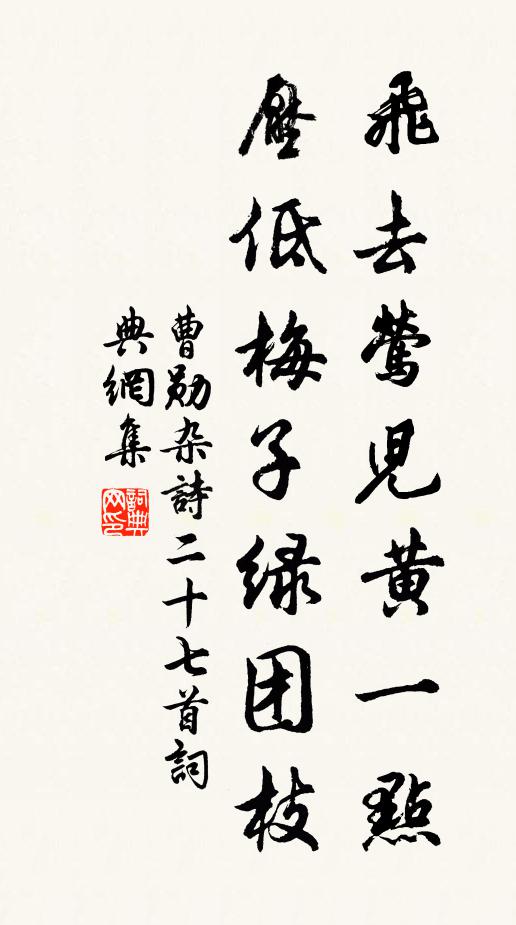 飛去鶯児黄一點
壓低梅子緑团枝
曹勛杂詩二十七首詞
典網集
詞典网印